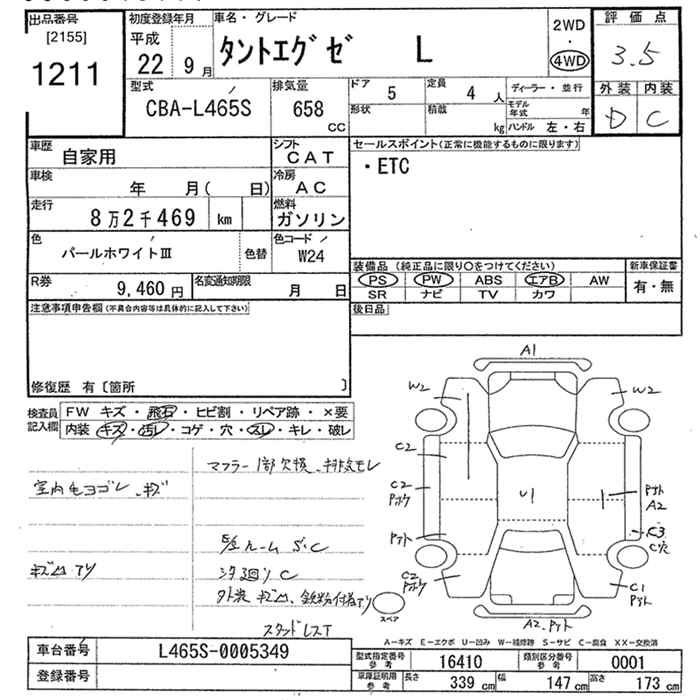 出品番号
[2155]
1211
初度登録年月
平成
22 9月
車名・グレード
タントエグゼ L
2WD
・
4WD
評価点
3.5
外装 内装
D C
型式
CBA-L465S
排気量
658
CC
ドア 5
定員 4人
形状
積載 kg
ディーラー・並行
モデル年式 年
ハンドル 左・右
車歴
自家用
シフト
CAT
車検
年 月( 日)
冷房
AC
走行
8万2千469 km
燃料
ガソリン
色
パールホワイトIII
色替
色コード
W24
R券
9,460円
名変通知期限
月 日
セールスポイント(正常に機能するものに限ります)
・ETC
装備品 (純正品に限り○をつけてください)
PS PW ABS エアB AW
SR ナビ TV カワ
新車保証書
有・無
後日品
注意事項申告欄(不具合内容等は具体的に記入して下さい)
修復歴 有〔箇所 〕
検査員
記入欄
FW キズ・飛石・ヒビ割・リペア跡・×要
内装 キズ・汚レ・コゲ・穴・スレ・キレ・破レ
マフラー1部欠損、排気モレ
室内毛ヨゴレ、キズ
E/gルームS・C
下廻りC
外装キズ凹、鉄粉付着アリ
スタッドレスT
A1
W2
W2
C2
C2
U1
A2
C2
C1
C穴
A2
スペア
A-キズ E-エクボ U-凹み W-補修跡 S-サビ C-腐食 XX-交換済
車台番号
L465S-0005349
登録番号
型式指定番号
参考
16410
類別区分番号
参考
0001
車庫証明用
参考
長さ 339 cm
幅 147 cm
高さ 173 cm